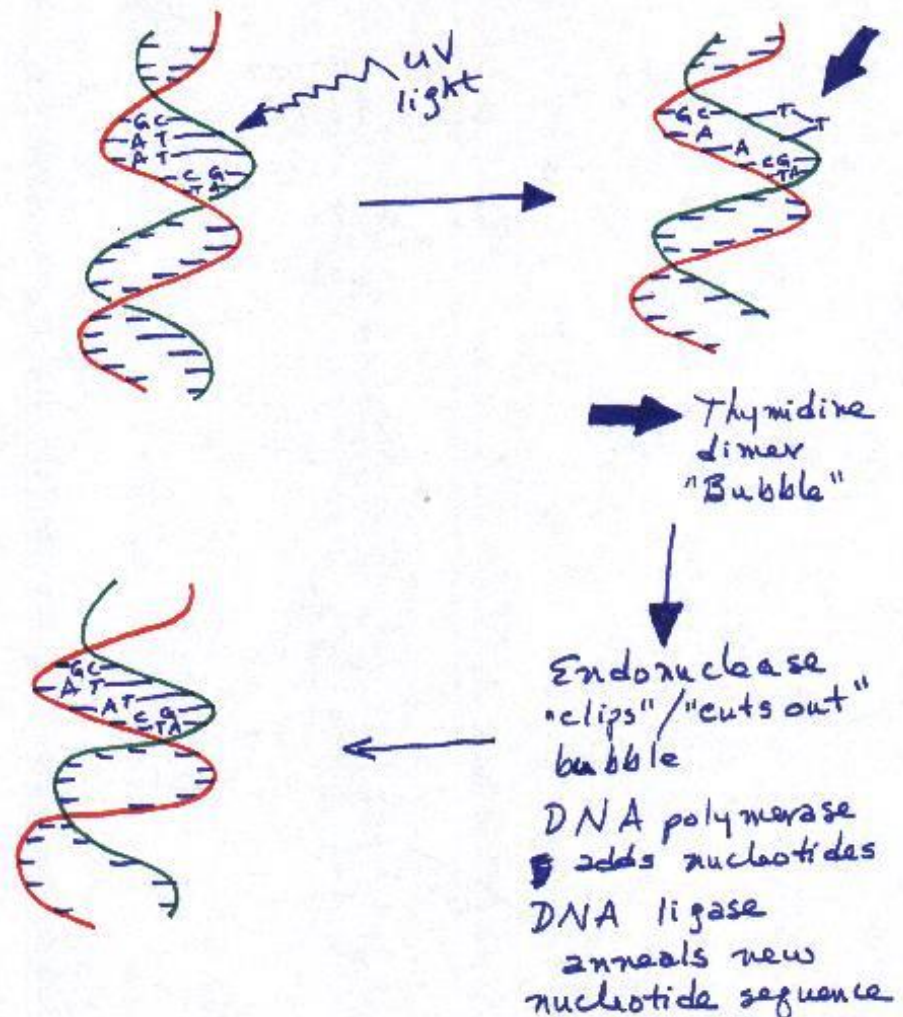 UV
light
G C
A T
A T
C G
T A
G C
T
T
A
A
C G
T A
Thymidine
dimer
"Bubble"
Endonuclease
"clips"/"cuts out"
bubble
DNA polymerase
adds nucleotides
DNA ligase
anneals new
nucleotide sequence
G C
A T
A T
C G
T A